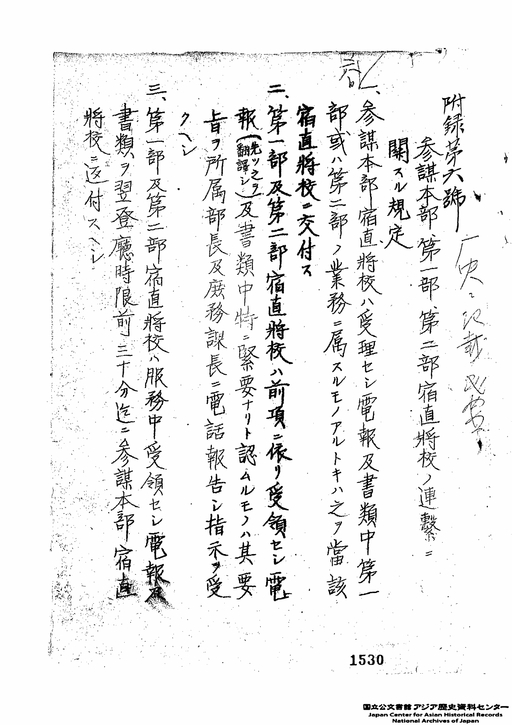 附録第六號
参謀本部、第一部、第二部宿直將校ノ連繫ニ
関スル規定
一、参謀本部宿直將校ハ受理セシ電報及書類中第一
部或ハ第二部ノ業務ニ属スルモノアルトキハ之ヲ當該
宿直將校ニ交付ス
二、第一部及第二部宿直將校ハ前項ニ依リ受領セシ電
報(先ツ之ヲ翻譯シ)及書類中特ニ緊要ナリト認ムルモノハ其要
旨ヲ所属部長及庶務課長ニ電話報告シ指示ヲ受
クヘシ
三、第一部及第二部宿直將校ハ服務中受領セシ電報及
書類ヲ翌登廳時限前三十分迄ニ参謀本部宿直
將校ニ送付スヘシ
1530
国立公文書館 アジア歴史資料センター
Japan Center for Asian Historical Records
National Archives of Japan